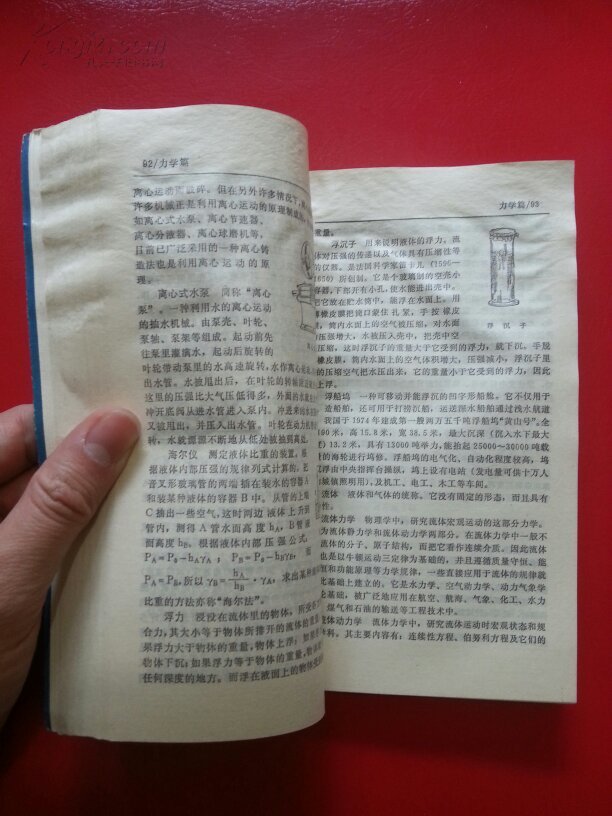 92/力学篇
离心运动而破碎。但在另外许多情况下,
许多机械正是利用离心运动的原理制成的,
如离心式水泵、离心节速器、
离心分液器、离心球磨机等,
目前已广泛采用的一种离心铸
造法也是利用离心运动的原
理。
离心式水泵 简称“离心
泵”。一种利用水的离心运动
的抽水机械。由泵壳、叶轮、
泵轴、泵架等组成。起动前先
往泵里灌满水,起动后旋转的
叶轮带动泵里的水高速旋转,水作离心
出水管。水被甩出后,在叶轮的转轴附近
这里的压强比大气压低得多,外面的水
冲开底阀从进水管进入泵内。冲进来的水
又被甩出,并压入出水管。叶轮在动力机
转,水就源源不断地从低处被抽到高处。
海尔仪 测定液体比重的装置。
据液体内部压强的规律列式计算的。把
音叉形玻璃管的两端插在装水的容器A
和装某种液体的容器B中。从管的上端
C抽出一些空气,这时两边液体上升到
管内,测得A管水面高度hA,B管液
面高度hB。根据液体内部压强公式,
PA=P₀-hAγA; PB=P₀-hBγB, 而
PA=PB,所以γB=hA/hB·γA,求出某种液
比重的方法亦称“海尔法”。
浮力 浸没在流体里的物体,所受
合力,其大小等于物体所排开的流体的重
果浮力大于物体的重量,物体上浮;如果
物体下沉;如果浮力等于物体的重量,物体
任何深度的地方。而浮在液面上的物体
力学篇/93
重量。
浮沉子 用来说明液体的浮力,流
体对压强的传递以及气体具有压缩性等
的仪器。是法国科学家笛卡儿(1596—
1650)所创制。它是个玻璃制的空壳小
容器,下部开有小孔,使水能进出壳中。
把它放在贮水筒中,能浮在水面上。用
薄橡皮膜把筒口蒙住扎紧,手按橡皮
,筒内水面上的空气被压缩,对水面
压强增大,水被压入壳中,把壳中空
压缩,这时浮沉子的重量大于它受到的浮力,就下沉,手脱
橡皮膜,筒内水面上的空气体积增大,压强减小,浮沉子里
的压缩空气把水压出来,它的重量小于它受到的浮力,因此
上浮。
浮沉子
浮船坞 一种可移动并能浮沉的凹字形船舱,它不仅用于
造船舶,还可用于打捞沉船,运送深水船舶通过浅水航道
我国于1974年建成第一艘两万五千吨浮船坞“黄山号”。全
190米,高15.8米,宽38.5米,最大沉深(沉入水下最大
)13.2米,具有13000吨举力,能抬起25000~30000吨载
的海轮进行坞修。浮船坞的电气化、自动化程度较高,坞
浮由中央指挥台操纵,坞上设有电站(发电量可供十万人
城镇照明用),及机工、电工、木工等车间。
流体 液体和气体的统称。它没有固定的形态,而且具有
性。
流体力学 物理学中,研究流体宏观运动的这部分力学。
为流体静力学和流体动力学两部分。在流体力学中一般不
流体的分子、原子结构,而把它看作连续介质。因此流体
也是以牛顿运动三定律为基础的,并且遵循质量守恒、能
恒和功能原理等力学规律,一些直接应用于流体的规律就
此基础上建立的。它是水力学、空气动力学、动力气象学
论基础,被广泛地应用在航空、航海、气象、化工、水力
煤气和石油的输送等工程技术中。
流体动力学 流体力学中,研究流体运动时宏观状态和规
科。其主要内容有:连续性方程、伯努利方程及它们的